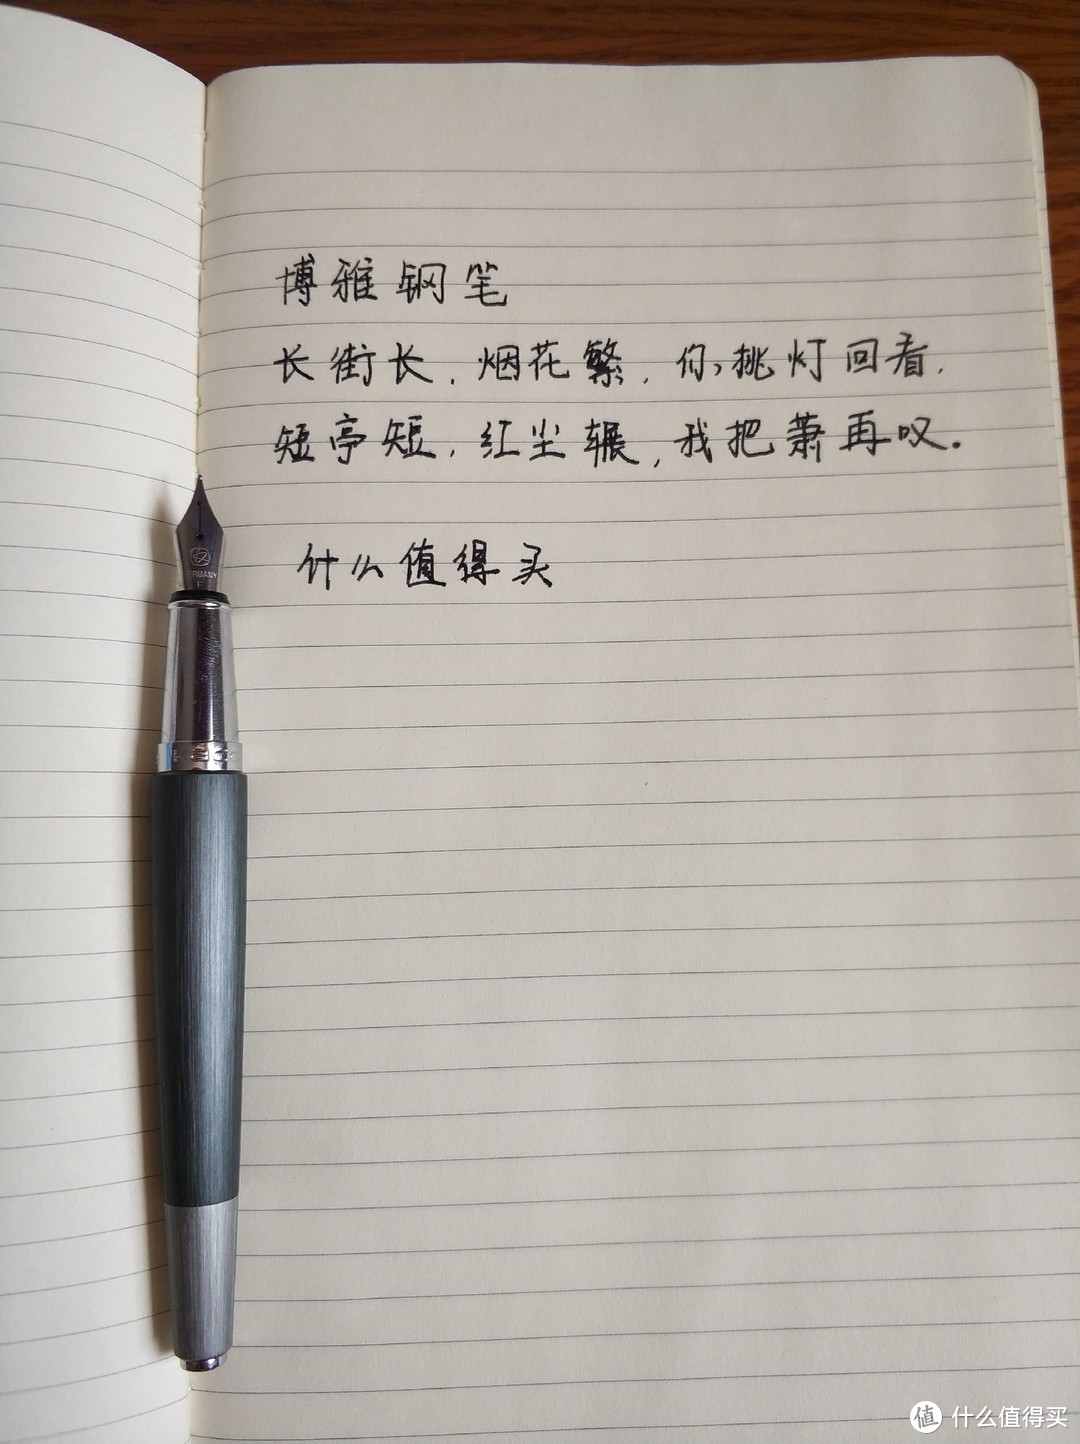 博雅钢笔
长街长，烟花繁，你挑灯回看，
短亭短，红尘辗，我把萧再叹。
什么值得买
GERMANY
F
值 什么值得买